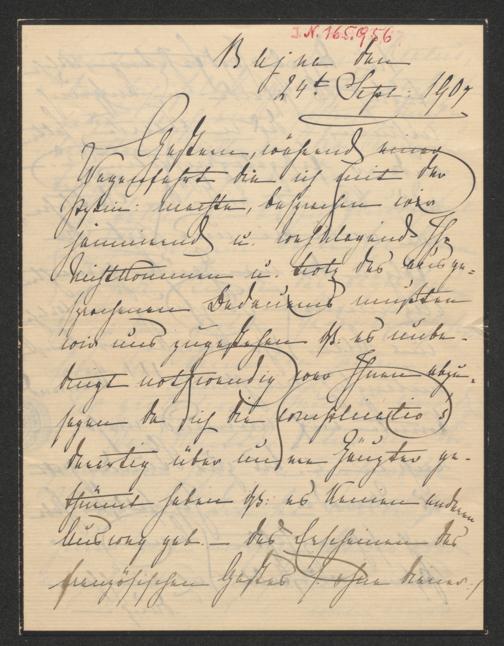 I.N. 165.956
Bajna den
24t Sept. 1907
Gestern, während einer
Wagenfahrt die ich mit der
machte, besprachen wir
jammernd u. wehklagend Ihr
Nichtkommen u. trotz des ausge-
sprochenen Bedauerns mußten
wir uns zugestehen dß: es unbe-
dingt nothwendig war Ihnen abzu-
sagen da sich die complicatio's
derartig über unsere Häupter ge-
thürmt haben dß: es keinen anderen
Ausweg gab. — das Erscheinen des
französischen Gastes (ohne Diener!